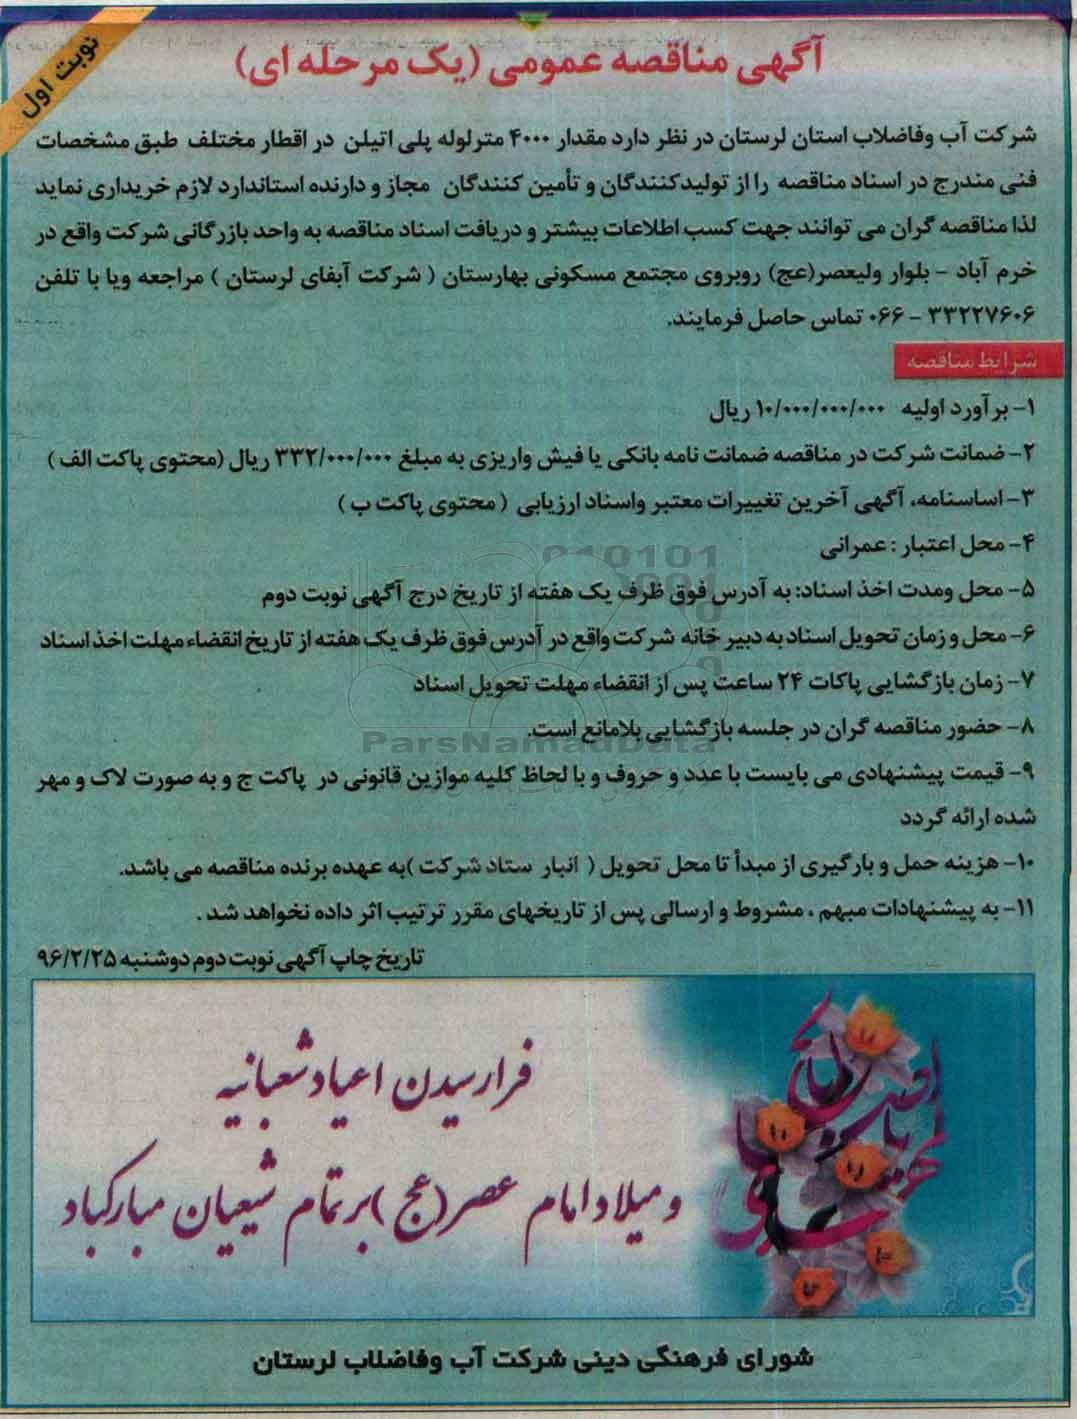 نوبت اول
آگهی مناقصه عمومی (یک مرحله ای)
شرکت آب وفاضلاب استان لرستان در نظر دارد مقدار ۴۰۰۰ مترلوله پلی اتیلن در اقطار مختلف طبق مشخصات
فنی مندرج در اسناد مناقصه را از تولیدکنندگان و تأمین کنندگان مجاز و دارنده استاندارد لازم خریداری نماید
لذا مناقصه گران می توانند جهت کسب اطلاعات بیشتر و دریافت اسناد مناقصه به واحد بازرگانی شرکت واقع در
خرم آباد - بلوار ولیعصر(عج) روبروی مجتمع مسکونی بهارستان ( شرکت آبفای لرستان ) مراجعه ویا با تلفن
۳۳۲۲۷۶۰۶ - ۰۶۶ تماس حاصل فرمایند.
شرایط مناقصه
۱- برآورد اولیه ۱۰/۰۰۰/۰۰۰/۰۰۰ ریال
۲- ضمانت شرکت در مناقصه ضمانت نامه بانکی یا فیش واریزی به مبلغ ۳۳۲/۰۰۰/۰۰۰ ریال (محتوی پاکت الف )
۳- اساسنامه، آگهی آخرین تغییرات معتبر واسناد ارزیابی ( محتوی پاکت ب )
۴- محل اعتبار : عمرانی
۵- محل ومدت اخذ اسناد: به آدرس فوق ظرف یک هفته از تاریخ درج آگهی نوبت دوم
۶- محل و زمان تحویل اسناد به دبیر خانه شرکت واقع در آدرس فوق ظرف یک هفته از تاریخ انقضاء مهلت اخذ اسناد
۷- زمان بازگشایی پاکات ۲۴ ساعت پس از انقضاء مهلت تحویل اسناد
۸- حضور مناقصه گران در جلسه بازگشایی بلامانع است.
ParsNamadData
۹- قیمت پیشنهادی می بایست با عدد و حروف و با لحاظ کلیه موازین قانونی در پاکت ج و به صورت لاک و مهر
شده ارائه گردد
۱۰- هزینه حمل و بارگیری از مبدأ تا محل تحویل ( انبار ستاد شرکت )به عهده برنده مناقصه می باشد.
۱۱- به پیشنهادات مبهم ، مشروط و ارسالی پس از تاریخهای مقرر ترتیب اثر داده نخواهد شد .
تاریخ چاپ آگهی نوبت دوم دوشنبه ۹۶/۲/۲۵
فرارسیدن اعیاد شعبانیه
و میلاد امام عصر(عج )بر تمام شیعیان مبارکباد
شورای فرهنگی دینی شرکت آب وفاضلاب لرستان